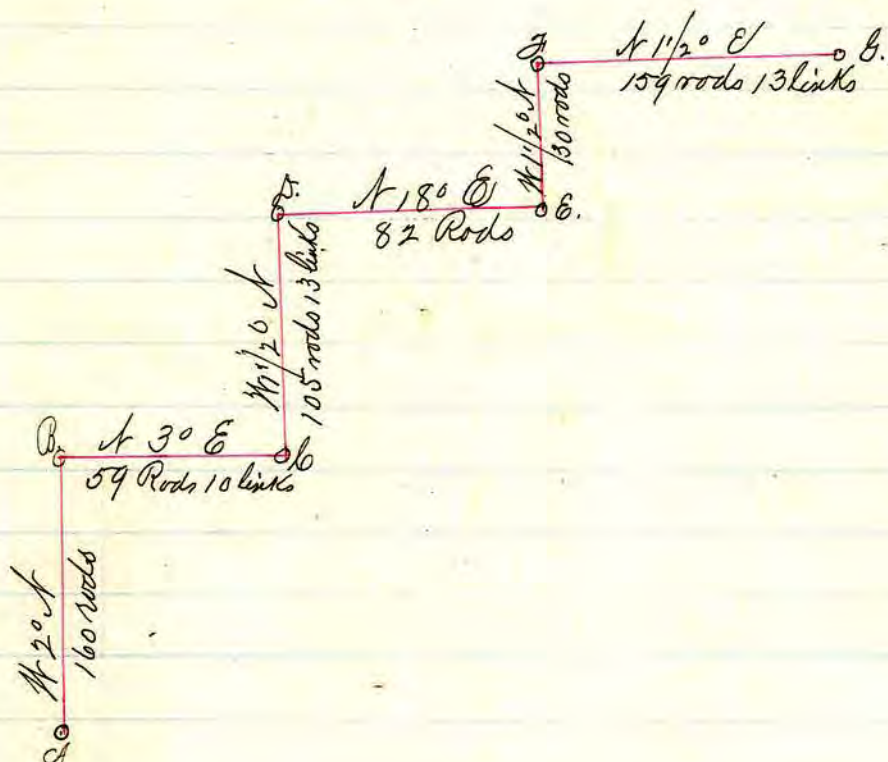 F.
N 1 1/2° E
G.
159 rods 13 links
W 1 1/2° N
130 rods
D.
N 18° E
E.
82 Rods
W 1 1/2° N
105 rods 13 links
B.
N 3° E
C
59 Rods 10 links
W 2° N
160 rods
A